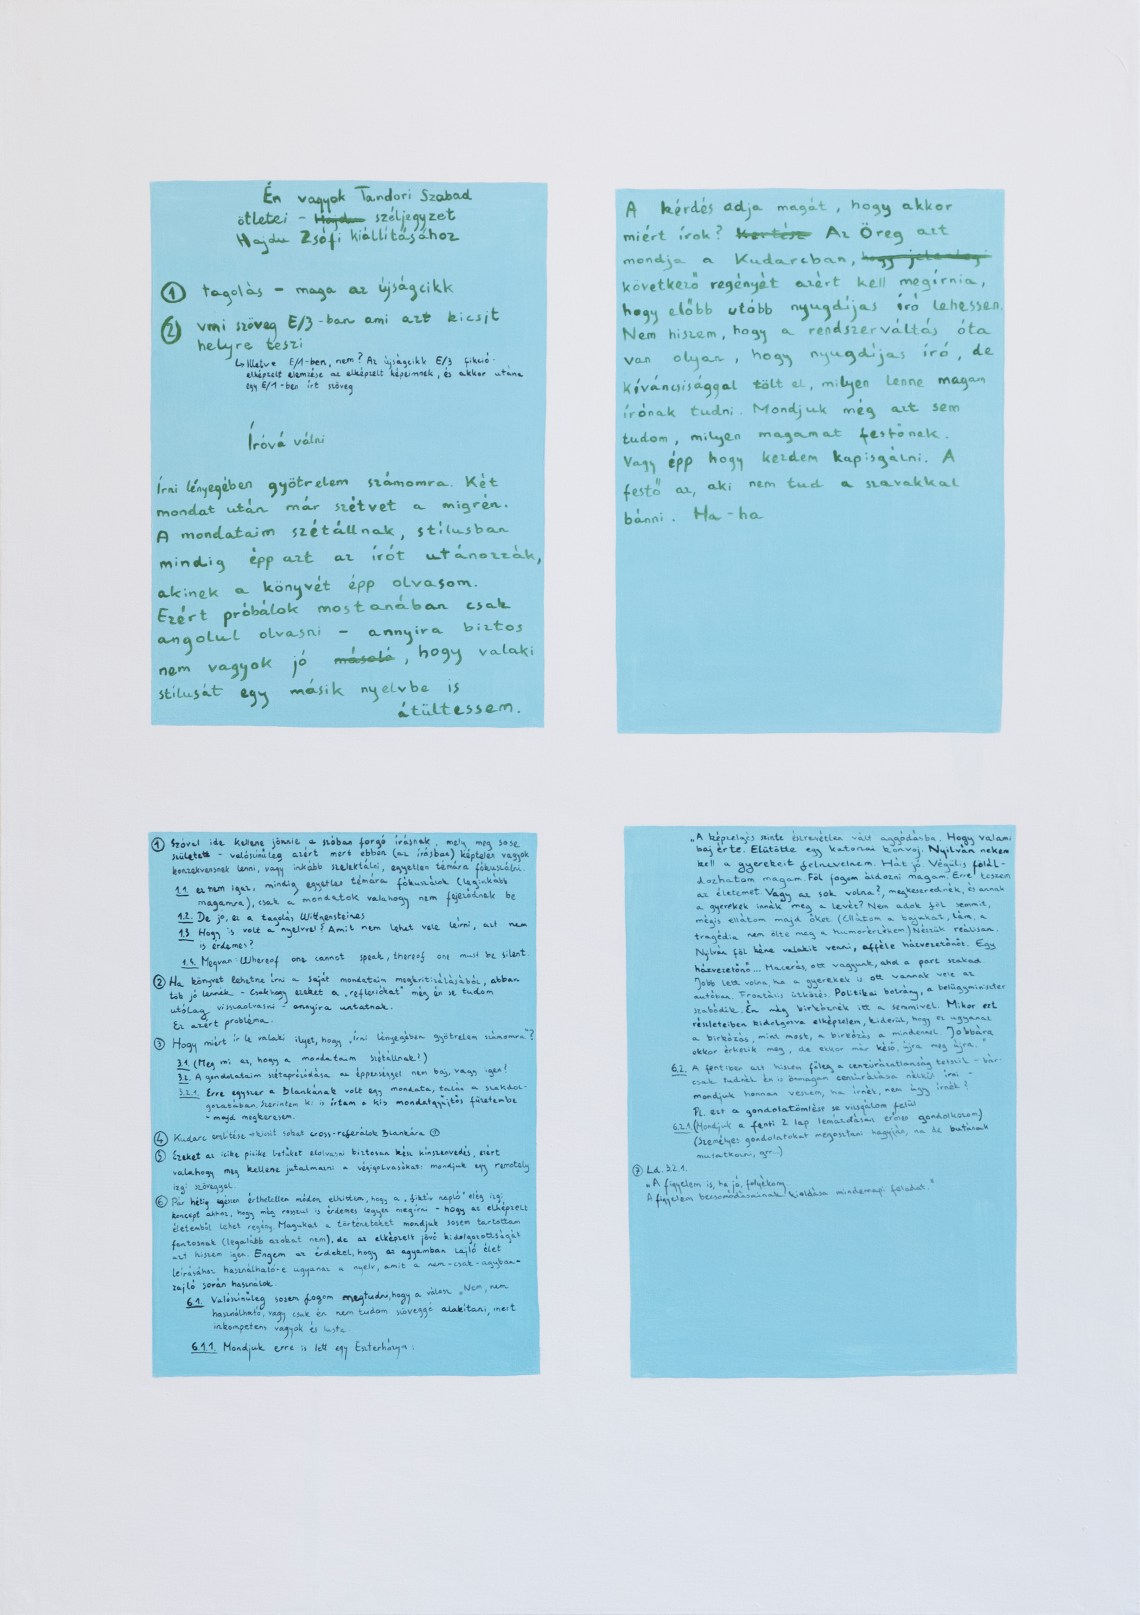 Én vagyok Tandori Szabad
ötletei – Hajdu széljegyzet
Hajdu Zsófi kiállításához
① tagolás – maga az újságcikk
② vmi szöveg E/3-ban ami azt kicsit
helyre teszi
↳ Illetve E/1-ben, nem? Az újságcikk E/3 fikció-
elképzelt elemzése az elképzelt képeimnek, és akkor utána
egy E/1-ben írt szöveg
Íróvá válni
Írni lényegében gyötrelem számomra. Két
mondat után már szétvet a migrén.
A mondataim szétállnak, stílusban
mindig épp azt az írót utánozzák,
akinek a könyvét épp olvasom.
Ezért próbálok mostanában csak
angolul olvasni – annyira biztos
nem vagyok jó másoló, hogy valaki
stílusát egy másik nyelvbe is
átültessem.
A kérdés adja magát, hogy akkor
miért írok? Kertész Az Öreg azt
mondja a Kudarcban, hogy jelenlegi
következő regényét azért kell megírnia,
hogy előbb utóbb nyugdíjas író lehessen.
Nem hiszem, hogy a rendszerváltás óta
van olyan, hogy nyugdíjas író, de
kíváncsisággal tölt el, milyen lenne magam
írónak tudni. Mondjuk még azt sem
tudom, milyen magamat festőnek.
Vagy épp hogy kezdem kapisgálni. A
festő az, aki nem tud a szavakkal
bánni. Ha-ha
① Szóval ide kellene jönnie a szóban forgó írásnak, mely még sose
született – valószínűleg azért mert ebben (az írásban) képtelen vagyok
konzekvensnek lenni, vagy inkább szelektálni, egyetlen témára fókuszálni.
1.1. ez nem igaz, mindig egyetlen témára fókuszálok (leginkább
magamra), csak a mondatok valahogy nem fejeződnek be
1.2. De jó, ez a tagolás Wittgensteines
1.3. Hogy is volt a nyelvvel? Amit nem lehet vele leírni, azt nem
is érdemes?
1.4. Megvan: Whereof one cannot speak, thereof one must be silent.
② Ha könyvet lehetne írni a saját mondataim megkritizálásából, abban
tök jó lennék – Csakhogy ezeket a „reflexiókat" még én se tudom
utólag visszaolvasni – annyira untatnak.
Ez azért probléma.
③ Hogy miért ír le valaki ilyet, hogy „írni lényegében gyötrelem számomra"?
3.1. (Meg mi az, hogy a mondataim szétállnak?)
3.2. A gondolataim szétaprózódása az éppenséggel nem baj, vagy igen?
3.2.1. Erre egyszer a Blankának volt egy mondata, talán a szakdol-
gozatában. Szerintem ki is írtam a kis mondatgyűjtős füzetembe
– majd megkeresem.
④ Kudarc említése – kicsit sokat cross-referálok Blankára
⑤ Ezeket az icike picike betűket elolvasni biztosan kész kínszenvedés, ezért
valahogy meg kellene jutalmazni a végigolvasókat: mondjuk egy remotely
izgi szöveggel.
⑥ Pár hétig egészen érthetetlen módon elhittem, hogy a „fiktív napló" elég izgi
koncept ahhoz, hogy még rosszul is érdemes legyen megírni – hogy az elképzelt
életemből lehet regény. Magukat a történeteket mondjuk sosem tartottam
fontosnak (legalább azokat nem), de az elképzelt jövő kidolgozottságát
azt hiszem igen. Engem az érdekel, hogy az agyamban zajló élet
leírásához használható-e ugyanaz a nyelv, amit a nem-csak-agyban-
zajló során használok.
6.1. Valószínűleg sosem fogom megtudni, hogy a válasz „Nem, nem
használható, vagy csak én nem tudom szöveggé alakítani, mert
inkompetens vagyok és lusta
6.1.1. Mondjuk erre is lett egy Eszterházym:
„A képzelgés szinte észrevétlen vált aggódásba. Hogy valami
baj érte. Elütötte egy katonai konvoj. Nyilván nekem
kell a gyerekeit felnevelnem. Hát jó. Végülis feláll-
dozhatom magam. Föl fogom áldozni magam. Erre teszem
az életemet. Vagy az sok volna?, megkeserednék, és annak
a gyerekek innák meg a levét? Nem adok föl semmit,
mégis ellátom majd őket. (Ellátom a bajukat, lám, a
tragédia nem ölte meg a humorérzékem.) Nézzük reálisan.
Nyilván föl kéne valakit venni, afféle házvezetőnőt. Egy
házvezetőnő... Macerás, ott vagyunk, ahol a part szakad.
Jobb lett volna, ha a gyerekek is ott vannak vele az
autóban. Frontális ütközés. Politikai botrány, a belügyminiszter
szabódik. Én meg birkóznék itt a semmivel. Mikor ezt
részleteiben kidolgozva elképzelem, kiderül, hogy ez ugyanaz
a birkózás, mint most, a birkózás a mindennel. Jobbára
akkor érkezik meg, de ekkor már késő, újra meg újra."
6.2. A fentiben azt hiszem főleg a cenzúrázatlanság tetszik – bár
csak tudnék én is önmagam cenzúrázása nélkül írni –
mondjuk honnan veszem, ha írnék, nem úgy írnék?
Pl. ezt a gondolatömlést se vizsgálom felül
6.2.1. (Mondjuk a fenti 2 lap lemázolásán erősen gondolkozom)
(Személyes gondolatokat megosztani hagyján, na de butának
mutatkozni, grr...)
⑦ Ld. 3.2.1.
„A figyelem is, ha jó, folyékony.
A figyelem becsomósodásainak kioldása mindennapi feladat."